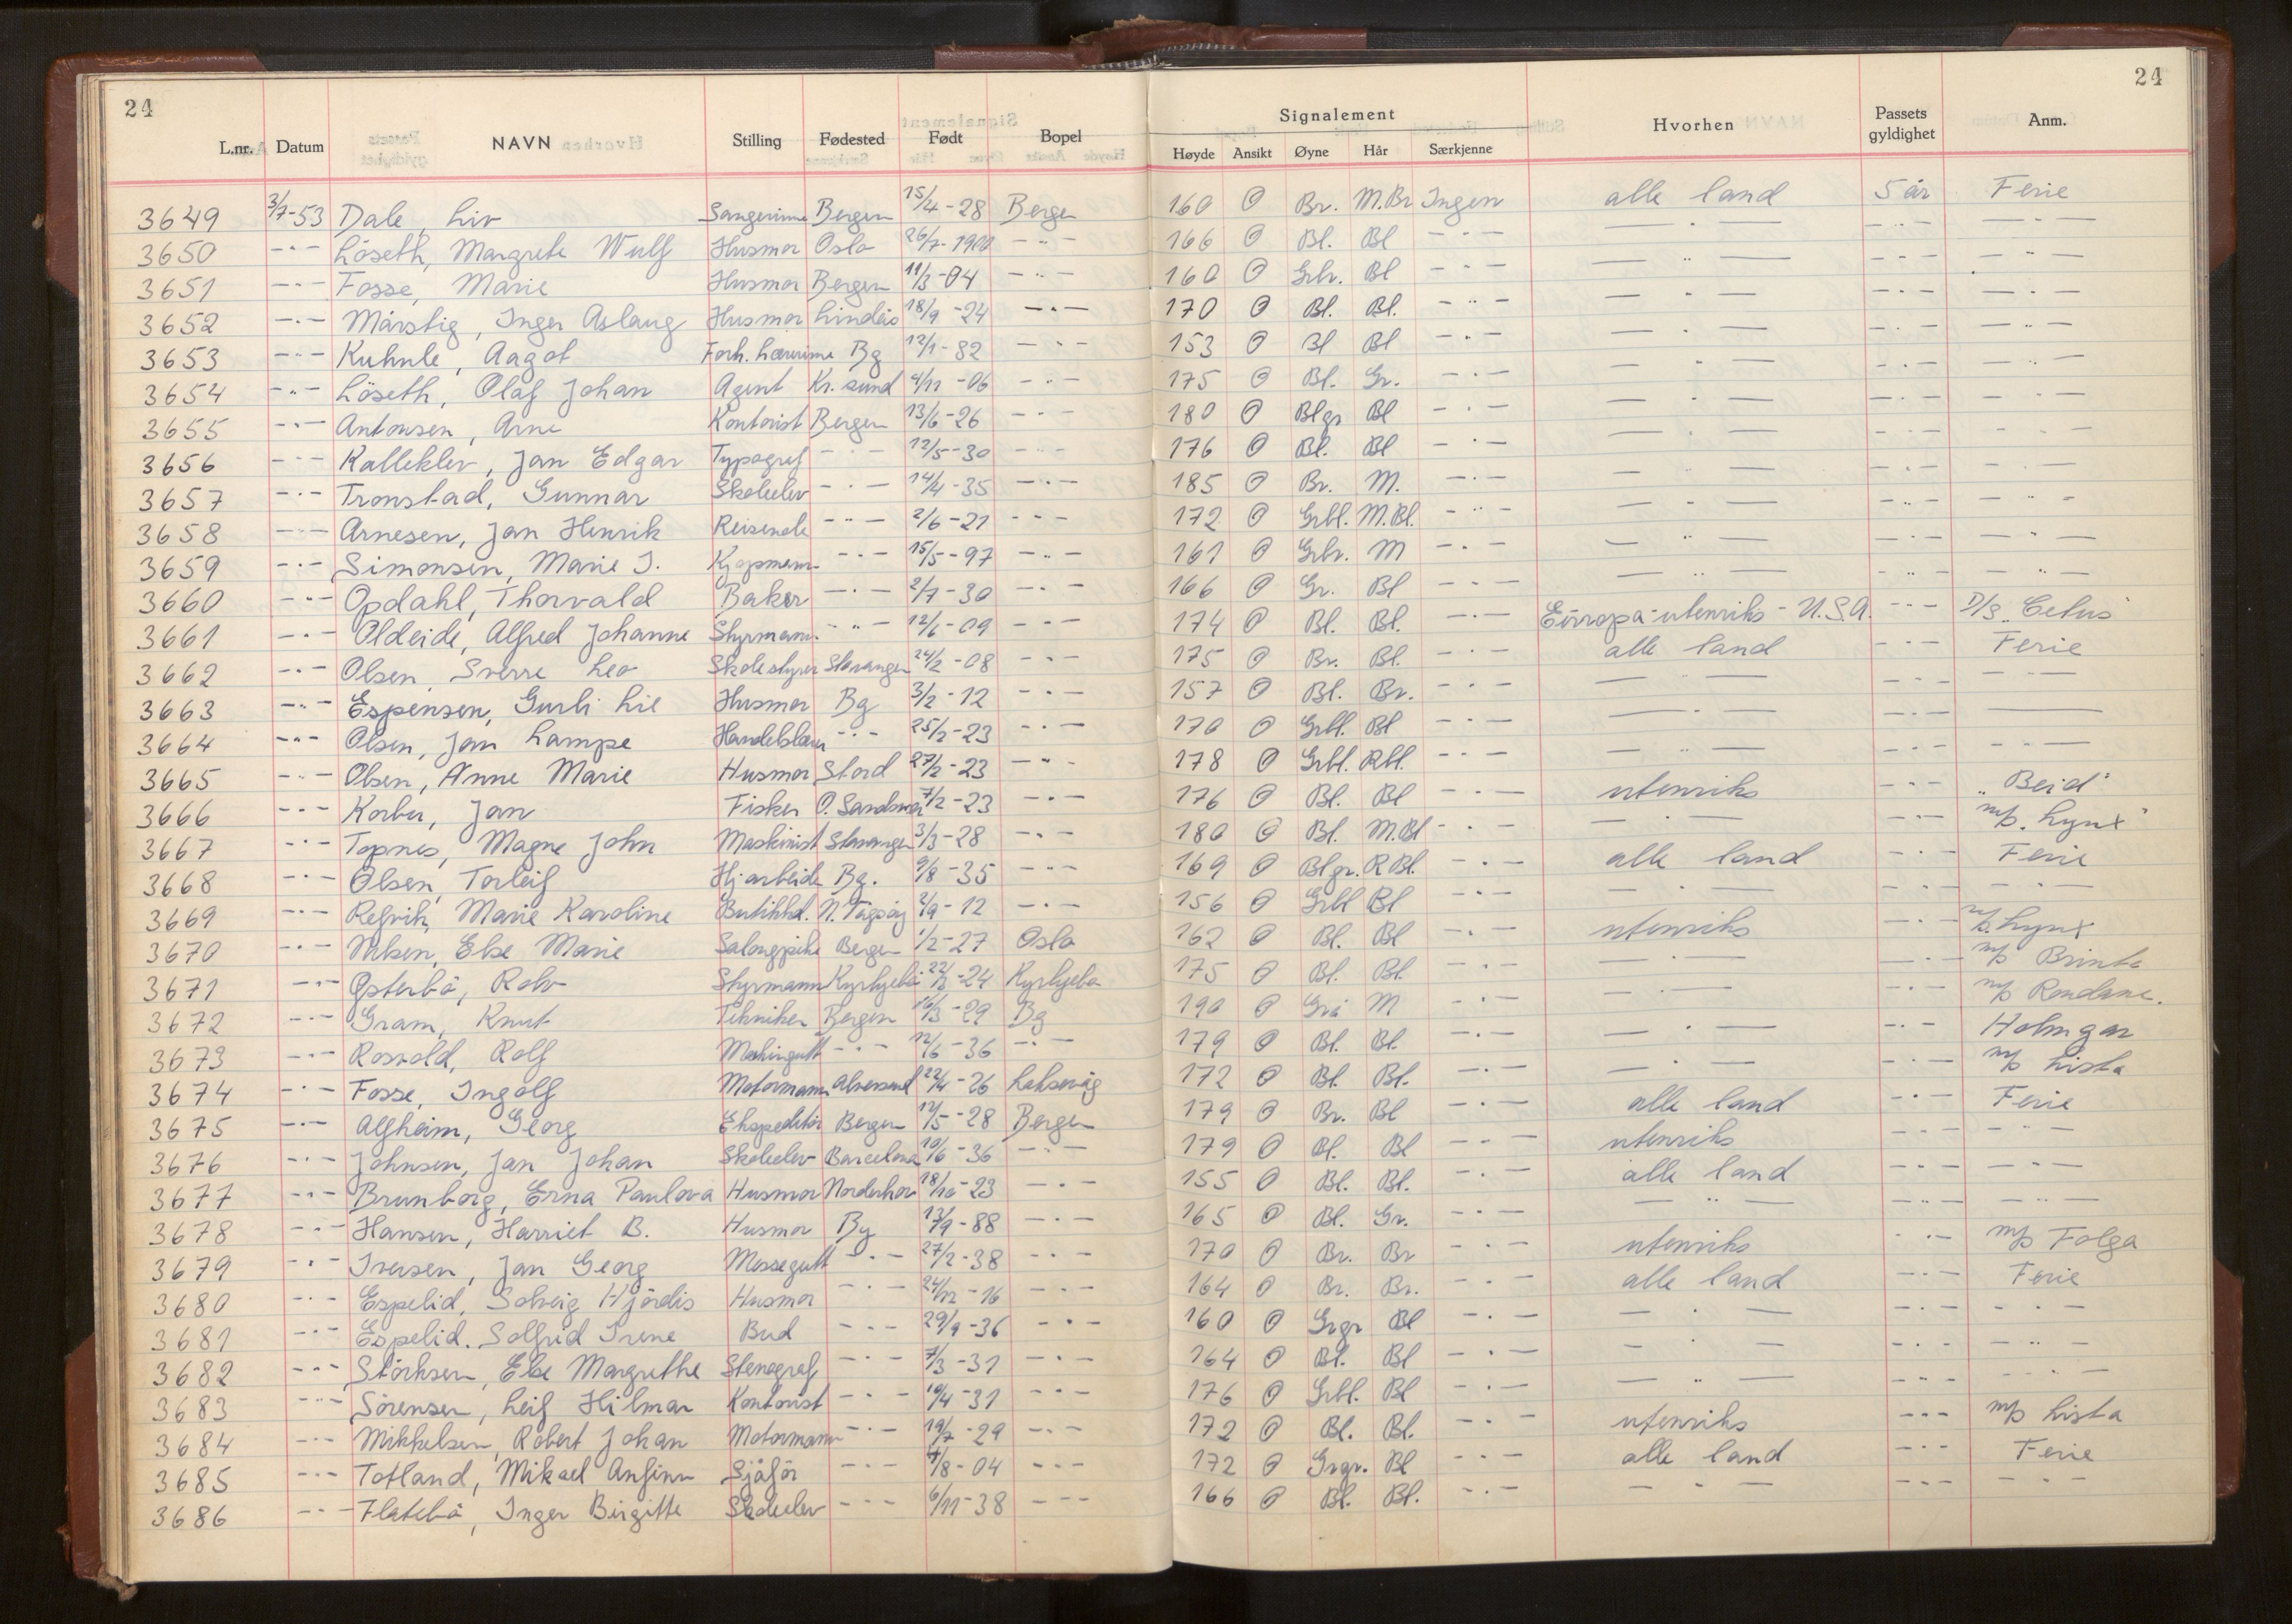 24
24
L.nr. Datum NAVN Stilling Fødested Født Bopel Signalement Hvorhen Passets gyldighet Anm.
Høyde Ansikt Øyne Hår Særkjenne
3649 3/7-53 Dale, Liv Sangerinne Bergen 15/4-28 Bergen 160 O Br. M.Br Ingen alle land 5 år Ferie
3650 -"- Löseth, Margrete Wulf Husmor Oslo 26/7-1900 -"- 166 O Bl. Bl -"- -"- -"- -"-
3651 -"- Fosse, Marie Husmor Bergen 11/3-04 -"- 160 O Grbr. Bl -"- -"- -"- -"-
3652 -"- Mårstig, Inger Aslaug Husmor Lindås 18/9-24 -"- 170 O Bl. Bl. -"- -"- -"- -"-
3653 -"- Kuhnle, Aagot Forh. Lærerinne Bg 12/1-82 -"- 153 O Bl Bl -"- -"- -"- -"-
3654 -"- Löseth, Olaf Johan Agent Kr.sund 4/11-06 -"- 175 O Bl. Gr. -"- -"- -"- -"-
3655 -"- Antonsen, Arne Kontorist Bergen 13/6-26 -"- 180 O Blgr Bl -"- -"- -"- -"-
3656 -"- Kalleklev, Jan Edgar Typograf -"- 12/5-30 -"- 176 O Bl. Bl -"- -"- -"- -"-
3657 -"- Tronstad, Gunnar Skoleelev -"- 14/4-35 -"- 185 O Br. M. -"- -"- -"- -"-
3658 -"- Arnesen, Jan Henrik Reisende -"- 2/6-21 -"- 172 O Grbl. M.Bl. -"- -"- -"- -"-
3659 -"- Simonsen, Marie J. Kjøpmenn -"- 15/5-97 -"- 161 O Grbr. M -"- -"- -"- -"-
3660 -"- Opdahl, Thorvald Baker -"- 2/7-30 -"- 166 O Gr. Bl -"- -"- -"- -"-
3661 -"- Oldeide, Alfred Johanne Styrmann -"- 12/6-09 -"- 174 O Bl. Bl. -"- Europa-utenriks - U.S.A. -"- D/S "Cetus"
3662 -"- Olsen, Sverre Leo Skolestyrer Stavanger 24/2-08 -"- 175 O Br. Bl. -"- alle land -"- Ferie
3663 -"- Espensen, Gurli Lie Husmor Bg 3/2-12 -"- 157 O Bl. Br. -"- -"- -"- -"-
3664 -"- Olsen, Jan Lampe -"- 25/2-23 -"- 170 O Grbl. Bl -"- -"- -"- -"-
3665 -"- Olsen, Anne Marie Husmor Stord 27/2-23 -"- 178 O Grbl. Rbl. -"- -"- -"- -"-
3666 -"- Korbu, Jan Fisker O. Sandsmar 7/2-23 -"- 176 O Bl. Bl -"- utenriks -"- "Beid"
3667 -"- Topnes, Magne John Maskinist Stavanger 3/3-28 -"- 180 O Bl. M.Bl -"- -"- -"- m/s "Lynx"
3668 -"- Olsen, Torleif Hj.arbeide Bg. 9/8-35 -"- 169 O Blgr. R Bl. -"- alle land -"- Ferie
3669 -"- Refvik, Marie Karoline Butikkd. N. Vågsøy 2/9-12 -"- 156 O Grbl Bl -"- -"- -"- -"-
3670 -"- Nilsen, Else Marie Salongpike Bergen 1/2-27 Oslo 162 O Bl. Bl -"- utenriks -"- m/s. Lynx
3671 -"- Østerbö, Rolv Styrmann Kyrkjebö 22/3-24 Kyrkjebø 175 O Bl. Bl. -"- -"- -"- m/s Brinta
3672 -"- Gram, Knut Tekniker Bergen 16/3-29 Bg 190 O Grå M -"- -"- -"- m/s Rondane.
3673 -"- Rosvold, Rolf Maskingutt -"- 12/6-36 -"- 179 O Bl. Bl. -"- -"- -"- Holmgar
3674 -"- Fosse, Ingolf Motormann Alversund 22/4-26 Laksevåg 172 O Bl. Bl. -"- -"- -"- m/s Lista
3675 -"- Alfheim, Georg Ekspeditör Bergen 12/5-28 Bergen 179 O Br. Bl -"- alle land -"- Ferie
3676 -"- Johnsen, Jan Johan Skoleelev Barcelona 10/6-36 -"- 179 O Bl. Bl -"- utenriks -"- -"-
3677 -"- Brunborg, Erna Paulova Husmor Norderhov 18/10-23 -"- 155 O Bl. Bl. -"- alle land -"- -"-
3678 -"- Hansen, Harriet B. Husmor Bg 13/9-88 -"- 165 O Bl. Gr. -"- -"- -"- -"-
3679 -"- Iversen, Jan Georg Messegutt -"- 27/2-38 -"- 170 O Br. Br -"- utenriks -"- m/s Folga
3680 -"- Espelid, Solveig Hjördis Husmor -"- 24/12-16 -"- 164 O Br. Br. -"- alle land -"- Ferie
3681 -"- Espelid. Solfrid Irene Bud -"- 29/9-36 -"- 160 O Grgr Bl -"- -"- -"- -"-
3682 -"- Störksen, Else Margrethe Stenograf -"- 7/3-31 -"- 164 O Bl. Bl -"- -"- -"- -"-
3683 -"- Sörensen, Leif Hilmar Kontorist -"- 10/4-31 -"- 176 O Grbl. Bl -"- -"- -"- -"-
3684 -"- Mikkelsen, Robert Johan Motormann -"- 19/7-29 -"- 172 O Bl. Bl. -"- utenriks -"- m/s Lista
3685 -"- Totland, Mikael Anfinn Sjåför -"- 4/8-04 -"- 172 O Grgr. Bl -"- alle land -"- Ferie
3686 -"- Flatebö, Inger Birgitte Skoleelev -"- 6/11-38 -"- 166 O Bl. Bl. -"- -"- -"- -"-